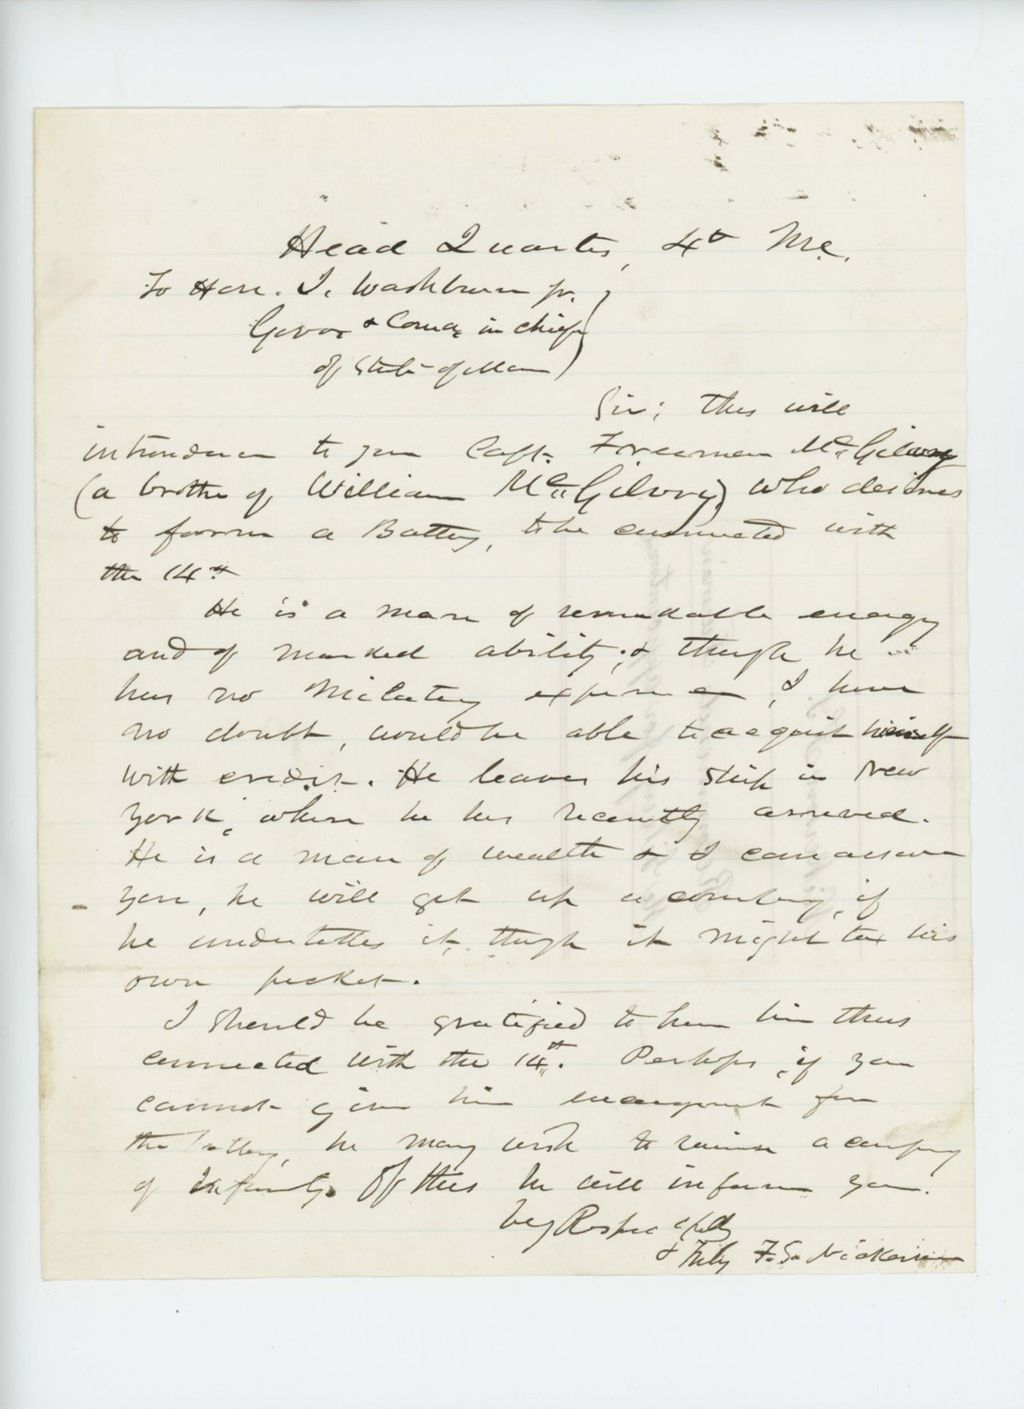 Head Quarters, 4th Me.
To Hon. I. Washburn jr. )
Govor & Comdr in chief )
of State of Maine )
Sir; This will
introduce to you Capt. Freeman McGilvery
(a brother of William McGilvery) who desires
to form a Battery, to be connected with
the 14th
He is a man of remarkable energy
and of marked ability; & though he
has no Military experience, I have
no doubt, would be able to acquit himself
with credit. He leaves his Ship in New
York, where he has recently arrived.
He is a man of wealth & I can assure
you, he will get up a company, if
he undertakes it, though it might tax his
own pocket.
I should be gratified to have him thus
connected with the 14th. Perhaps, if you
cannot give him encouragement for
the battery, he may wish to raise a company
of Infantry. Of this he will inform you.
Very Respectfully
& Truly F. S. Nickerson